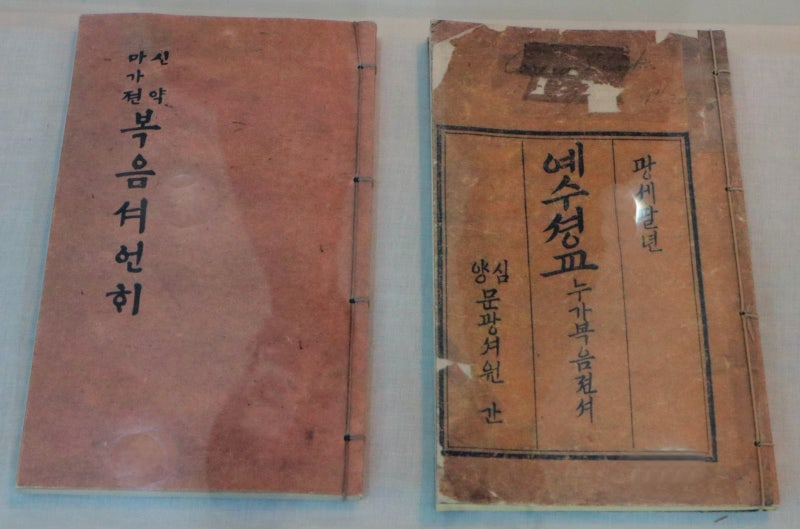 신약
마가젼
복음셔언ᄒᆡ
광세달년
예수셩교
누가복음젼셔
심양
문광셔원 간